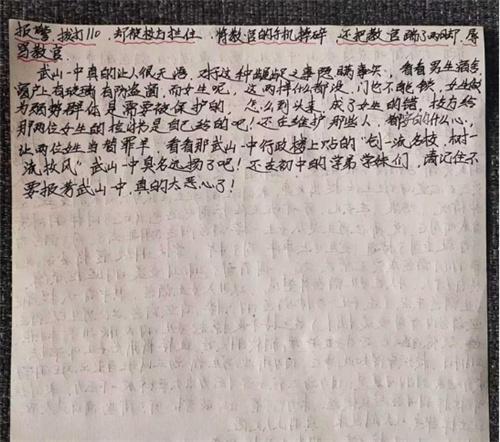 报警，拨打110，却被校方拦住，将教官的手机摔碎，还把教官踹了两脚，辱
骂教官。
武山一中真的让人很无语，对这种龌龊之事既瞒事实，看看男生宿舍
窗户上有玻璃有防盗窗，而女生呢，这两样什么都没，门也不能锁，女生做
为弱势群体是需要被保护的，怎么到头来，成了女生的错，校方给
那两位女生的处分是自己给的吧！还在维护那些人，都字的什么心，
让两位女生当替罪羊，看看那武山一中行政楼上贴的“创一流名校，树一
流校风”武山一中臭名远扬了吧！还在初中的学弟学妹们，请记住不
要报考武山一中，真的太恶心了！